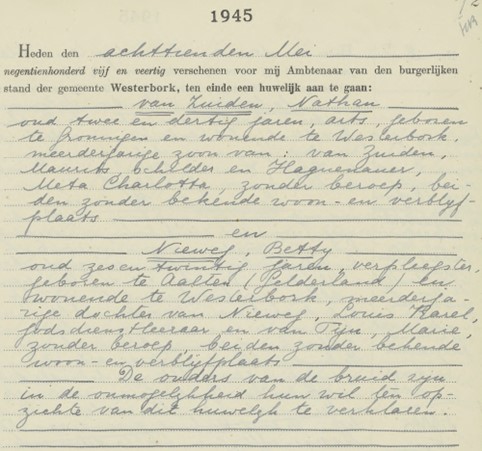 1945
Heden den achttienden Mei
negentienhonderd vijf en veertig verschenen voor mij Ambtenaar van den burgerlijken
stand der gemeente Westerbork, ten einde een huwelijk aan te gaan:
van Zuiden, Nathan
oud twee en dertig jaren, arts, geboren
te Groningen en wonende te Westerbork,
meerderjarige zoon van: van Zuiden,
Maurits, schilder en Haguenauer,
Meta Charlotta, zonder beroep, bei-
den zonder bekende woon- en verblijf-
plaats
en
Nieweg, Betty
oud zes en twintig jaren, verpleegster,
geboren te Aalten (Gelderland) en
wonende te Westerbork, meerderja-
rige dochter van Nieweg, Louis Karel,
godsdienstleeraar en van Pijn, Marie,
zonder beroep beiden zonder bekende
woon- en verblijfplaats
De ouders van de bruid zijn
in de onmogelijkheid hun wil ten op-
zichte van dit huwelijk te verklaren.